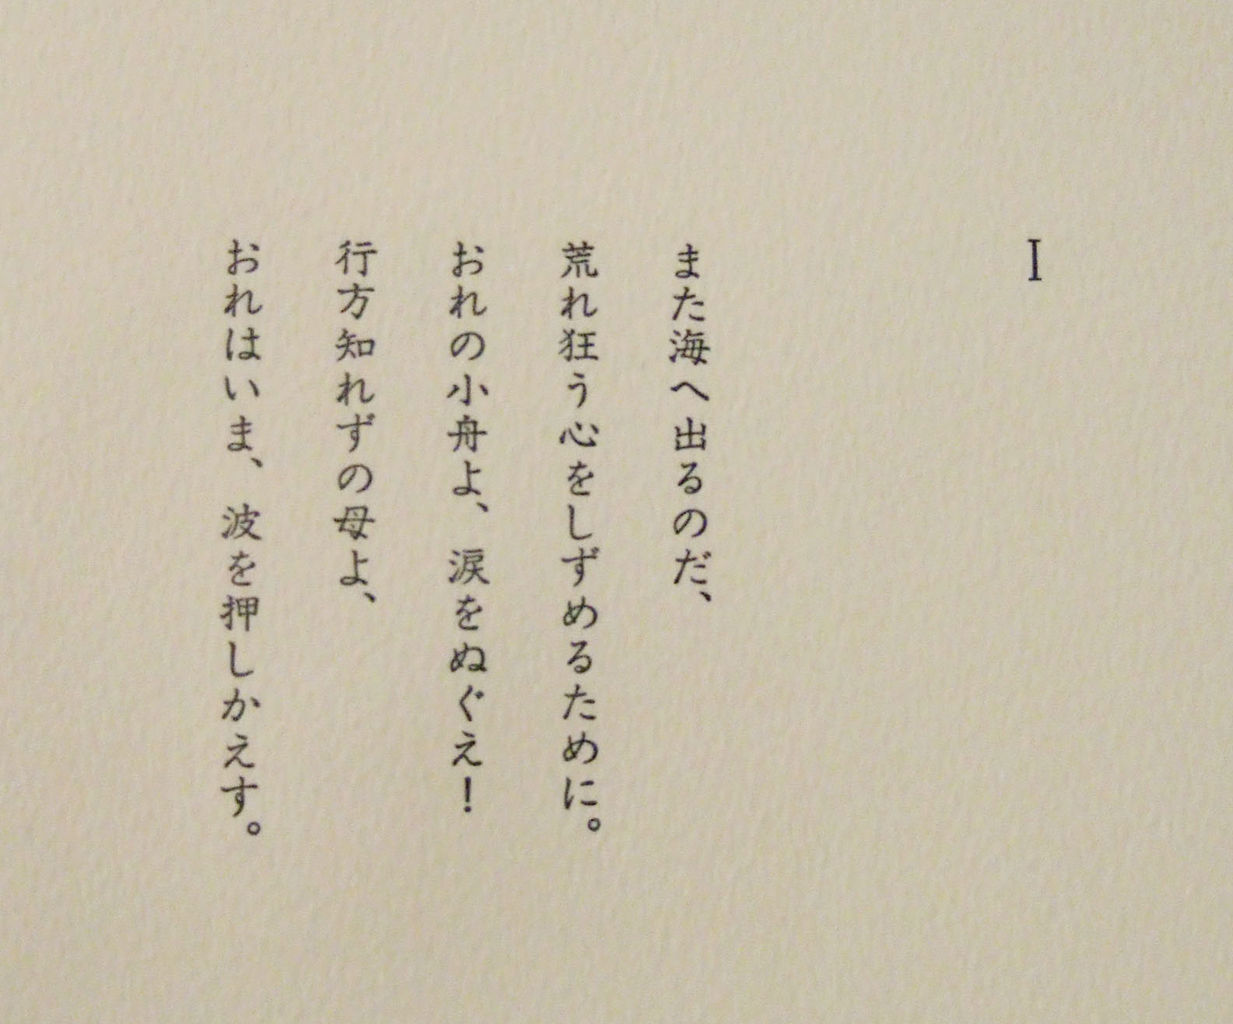 I
また海へ出るのだ、
荒れ狂う心をしずめるために。
おれの小舟よ、涙をぬぐえ！
行方知れずの母よ、
おれはいま、波を押しかえす。